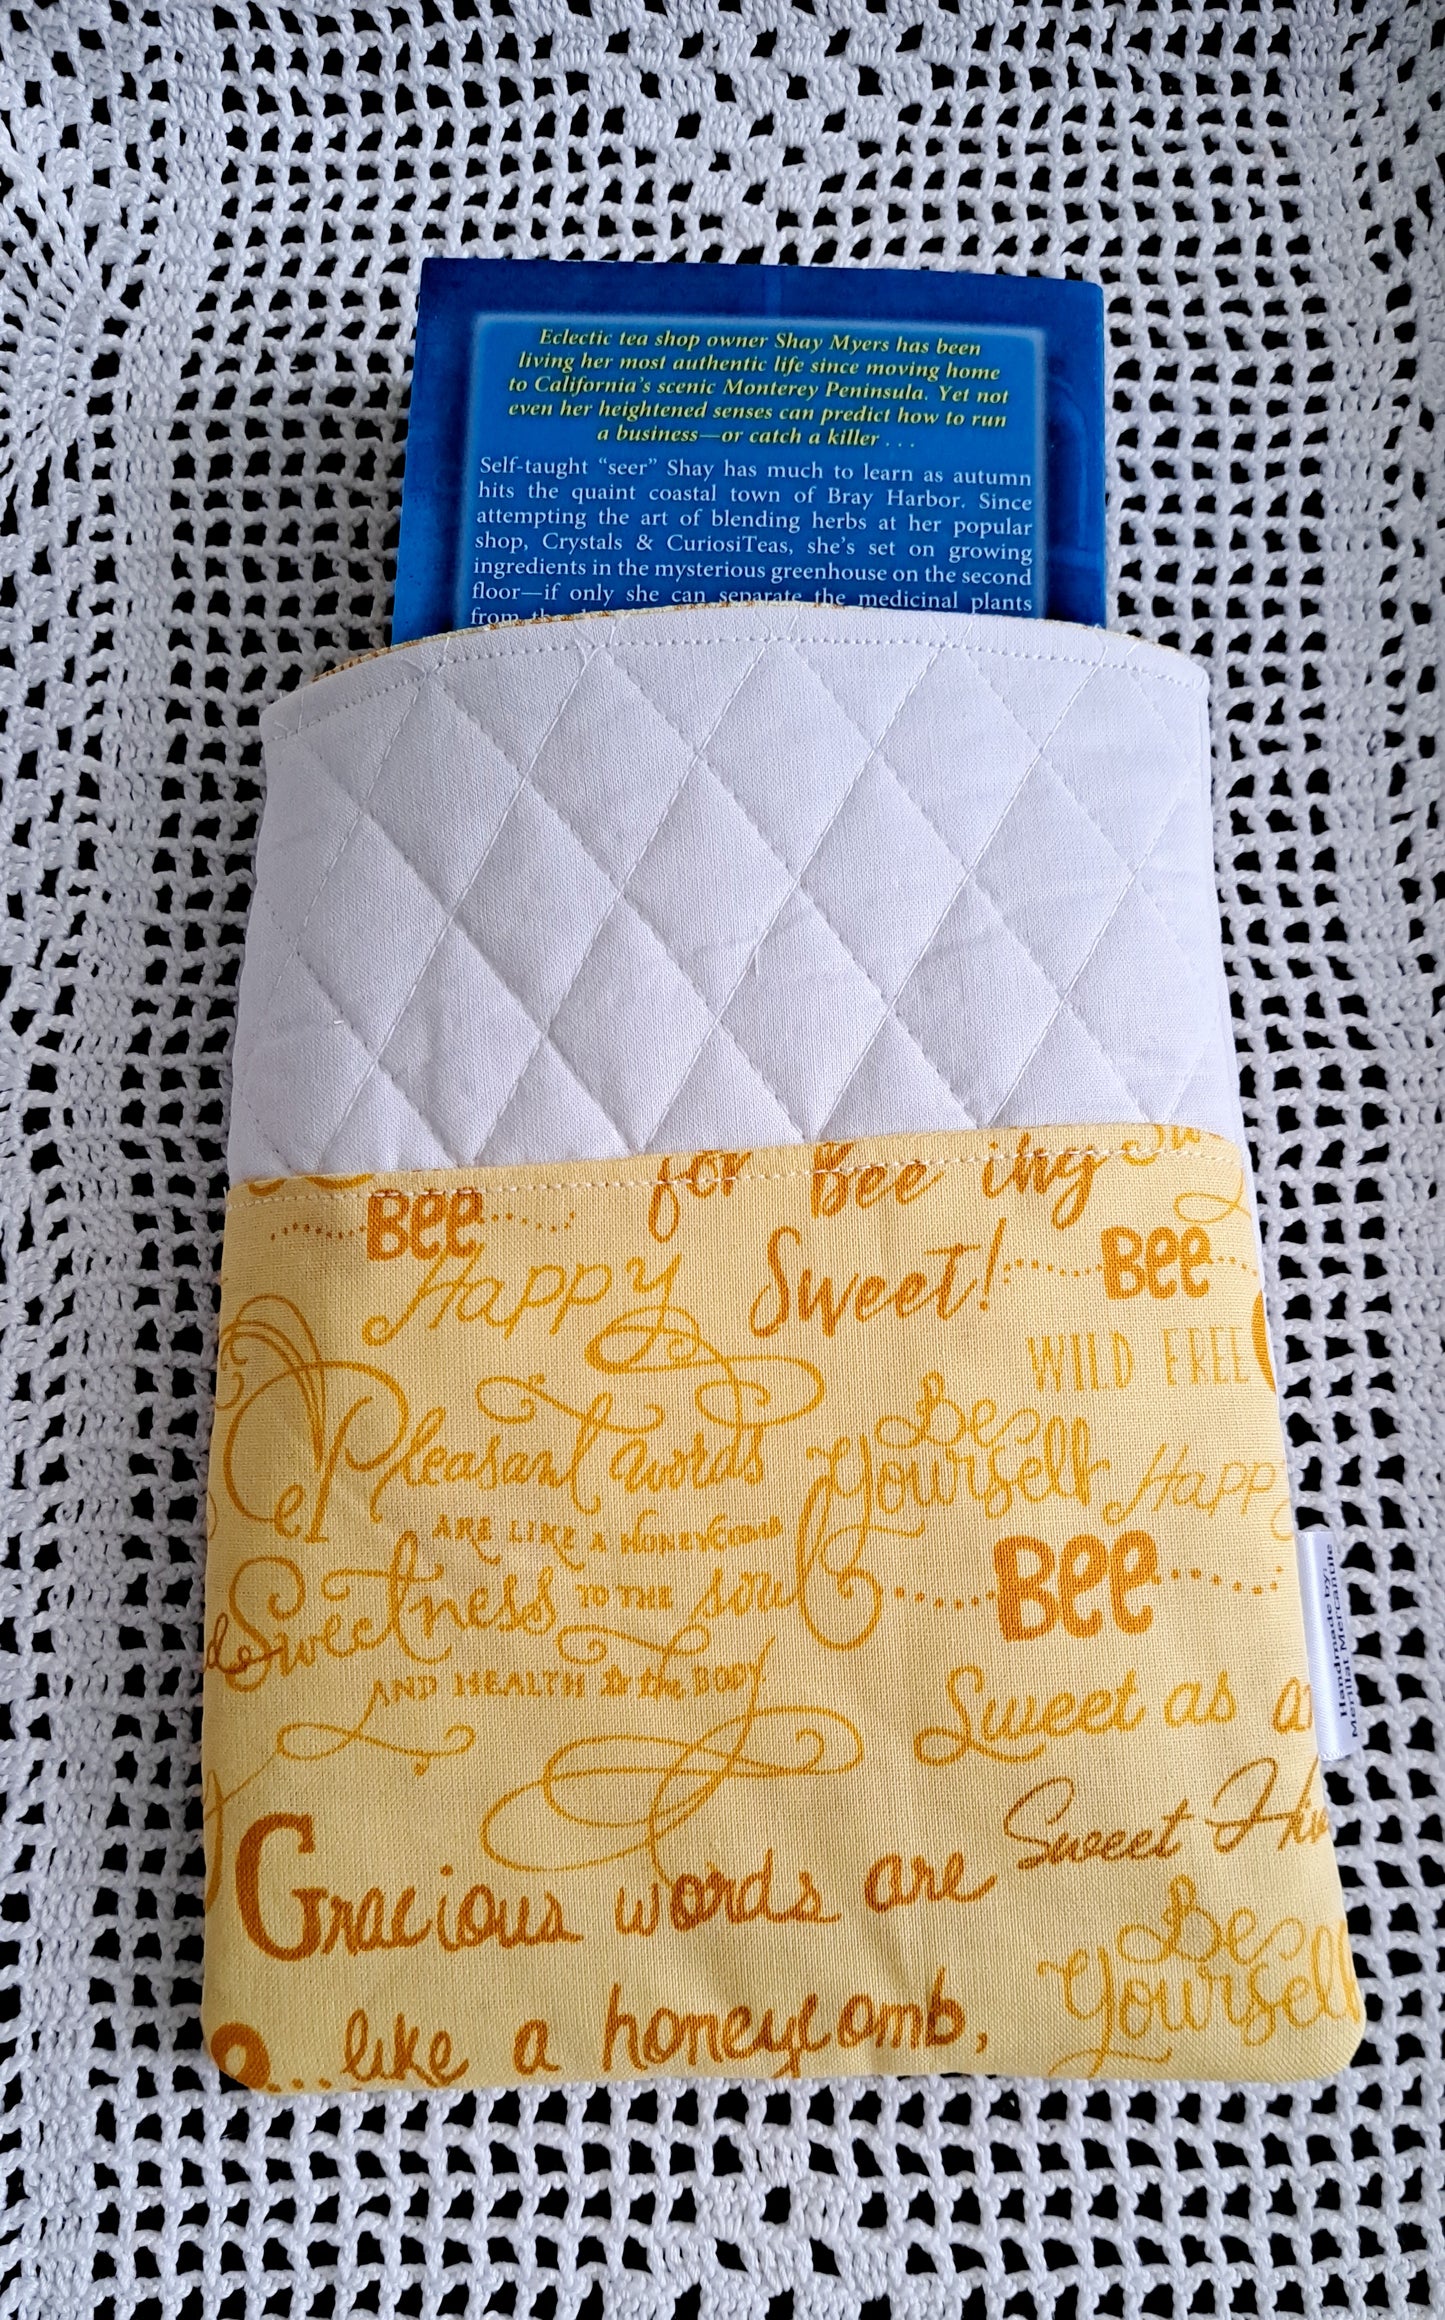 Eclectic tea shop owner Shay Myers has been
living her most authentic life since moving home
to California's scenic Monterey Peninsula. Yet not
even her heightened senses can predict how to run
a business—or catch a killer . . .
Self-taught “seer” Shay has much to learn as autumn
hits the quaint coastal town of Bray Harbor. Since
attempting the art of blending herbs at her popular
shop, Crystals & CuriosiTeas, she's set on growing
ingredients in the mysterious greenhouse on the second
floor—if only she can separate the medicinal plants
from
for Bee ing
Sweet!
BEE
Happy
BEE
WILD FREE
Pleasant words
ARE LIKE A HONEYCOMB
Sweetness TO THE soul
AND HEALTH to the BODY
Be
Yourself
Happy
BEE
Handmade by:
Merillat Mercantile
Sweet as
Sweet
Gracious words are
like a honeycomb,
Be
Yourself